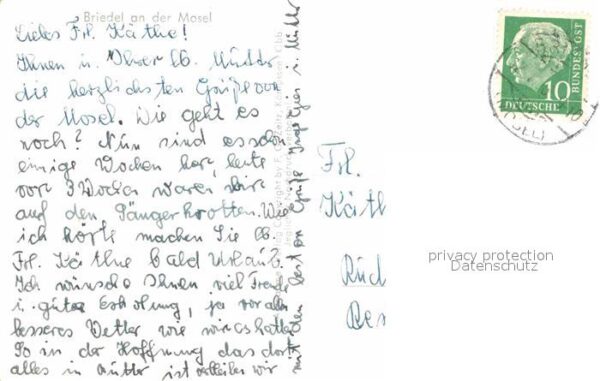 Briedel an der Mosel
Liebes Frl. Käthe!
Ihnen u. Ihrer lb. Mutter
die herzlichsten Grüße von
der Mosel. Wie geht es
noch? Nun sind es schon
einige Wochen her, heute
vor 3 Wochen waren wir
auf den Wie
ich hörte machen Sie lb.
Frl. Käthe bald Urlaub.
Ich wünsche Ihnen viel Freude
u. gute Erholung, ja vor allem
besseres Wetter wie wir es hatten
So in der Hoffnung das dort
alles in Butter ist verbleiben wir
mit den besten Grüße u. Mutter
Copyright by
Frl.
Käth
Rüd
10
DEUTSCHE
BUNDESPOST
privacy protection
Datenschutz